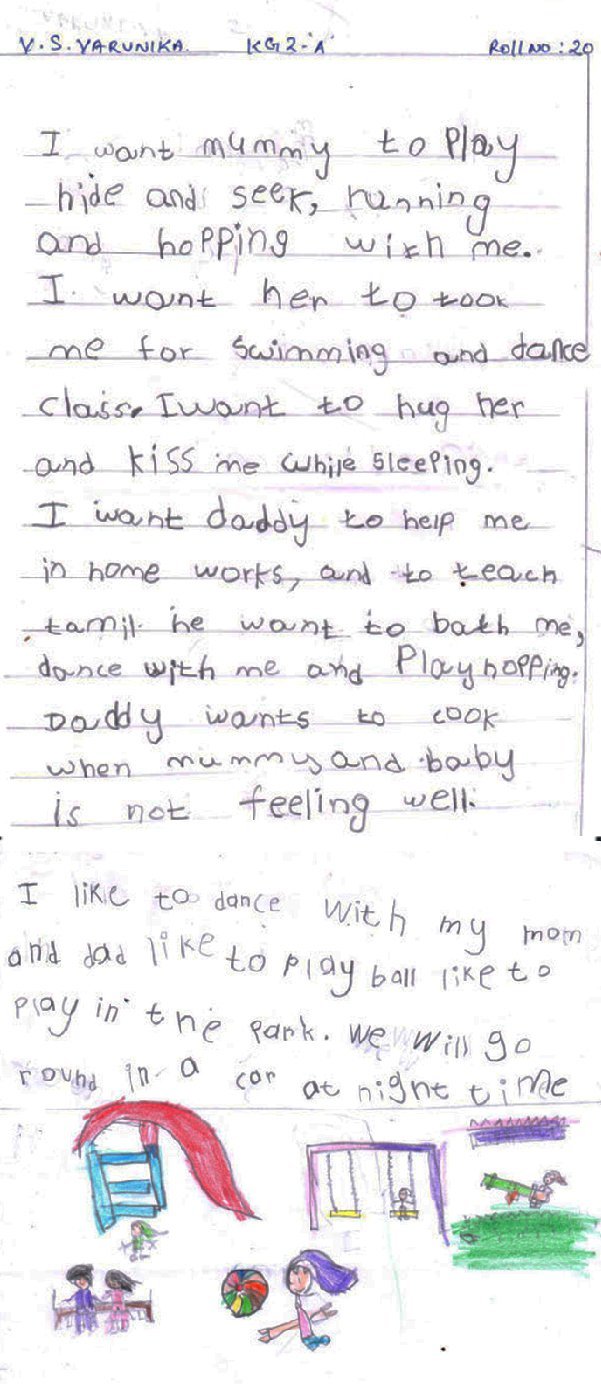 V. S. VARUNIKA. KG2-'A' Roll NO : 20
I want mummy to play
hide and seek, running
and hopping with me.
I want her to took
me for swimming and dance
class. I want to hug her
and kiss me while sleeping.
I want daddy to help me
in home works, and to teach
tamil. he want to bath me,
dance with me and Play hopping.
Daddy wants to cook
when mummy and baby
is not feeling well.
I like to dance with my mom
and dad like to play ball like to
play in the park. we will go
round in a car at night time